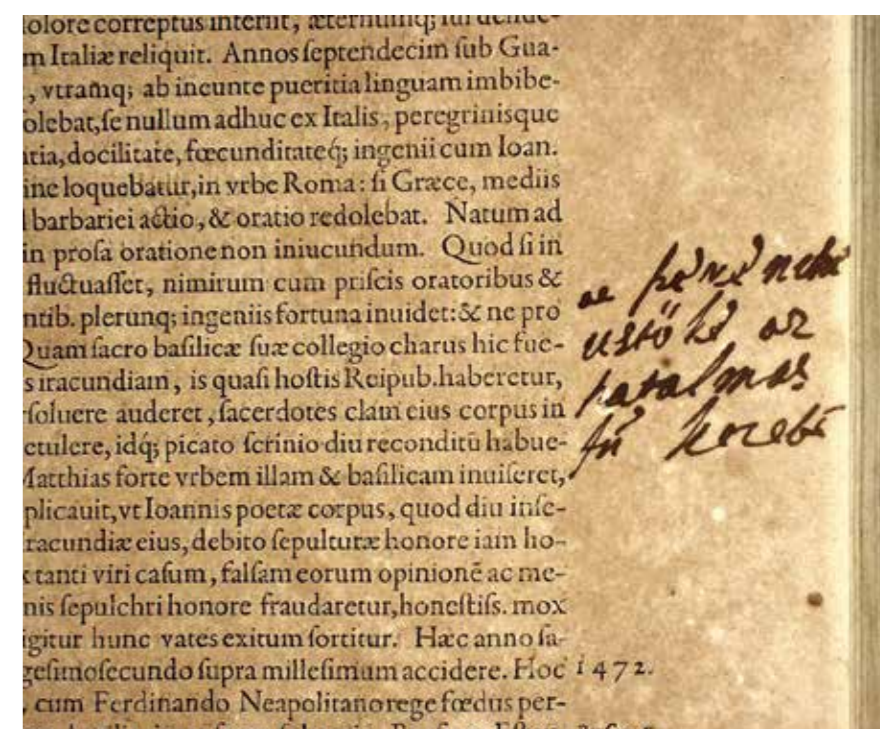 dolore correptus interiit, æternumq; sui
m Italiæ reliquit. Annos ſeptendecim ſub Gua-
, vtramq; ab incunte pueritia linguam imbibe-
olebat, ſe nullum adhuc ex Italis, peregrinisque
ntia, docilitate, fœcunditateq́; ingenii cum Ioan.
ine loquebatur, in vrbe Roma: ſi Græce, mediis
barbariei actio, & oratio redolebat. Natum ad
in proſa oratione non iniucundum. Quod ſi in
fluctuaſſet, nimirum cum priſcis oratoribus &
ntib. plerunq; ingeniis fortuna inuidet: & ne pro
Quam ſacro baſilicæ ſuæ collegio charus hic fue-
s iracundiam, is quaſi hoſtis Reipub. haberetur,
rſoluere auderet, ſacerdotes clam eius corpus in
etulere, idq́; picato ſcrinio diu reconditū habue-
Matthias forte vrbem illam & baſilicam inuiſeret,
plicauit, vt Ioannis poetæ corpus, quod diu inſe-
racundiæ eius, debito ſepulturæ honore iam ho-
tanti viri caſum, falſam eorum opinionē ac me-
nis ſepulchri honore fraudaretur, honeſtiſs. mox
igitur hunc vates exitum ſortitur. Hæc anno ſa-
geſimoſecundo ſupra milleſimum accidere. Hoc 1472.
, cum Ferdinando Neapolitano rege fœdus per-
ustökè az
hatalmas